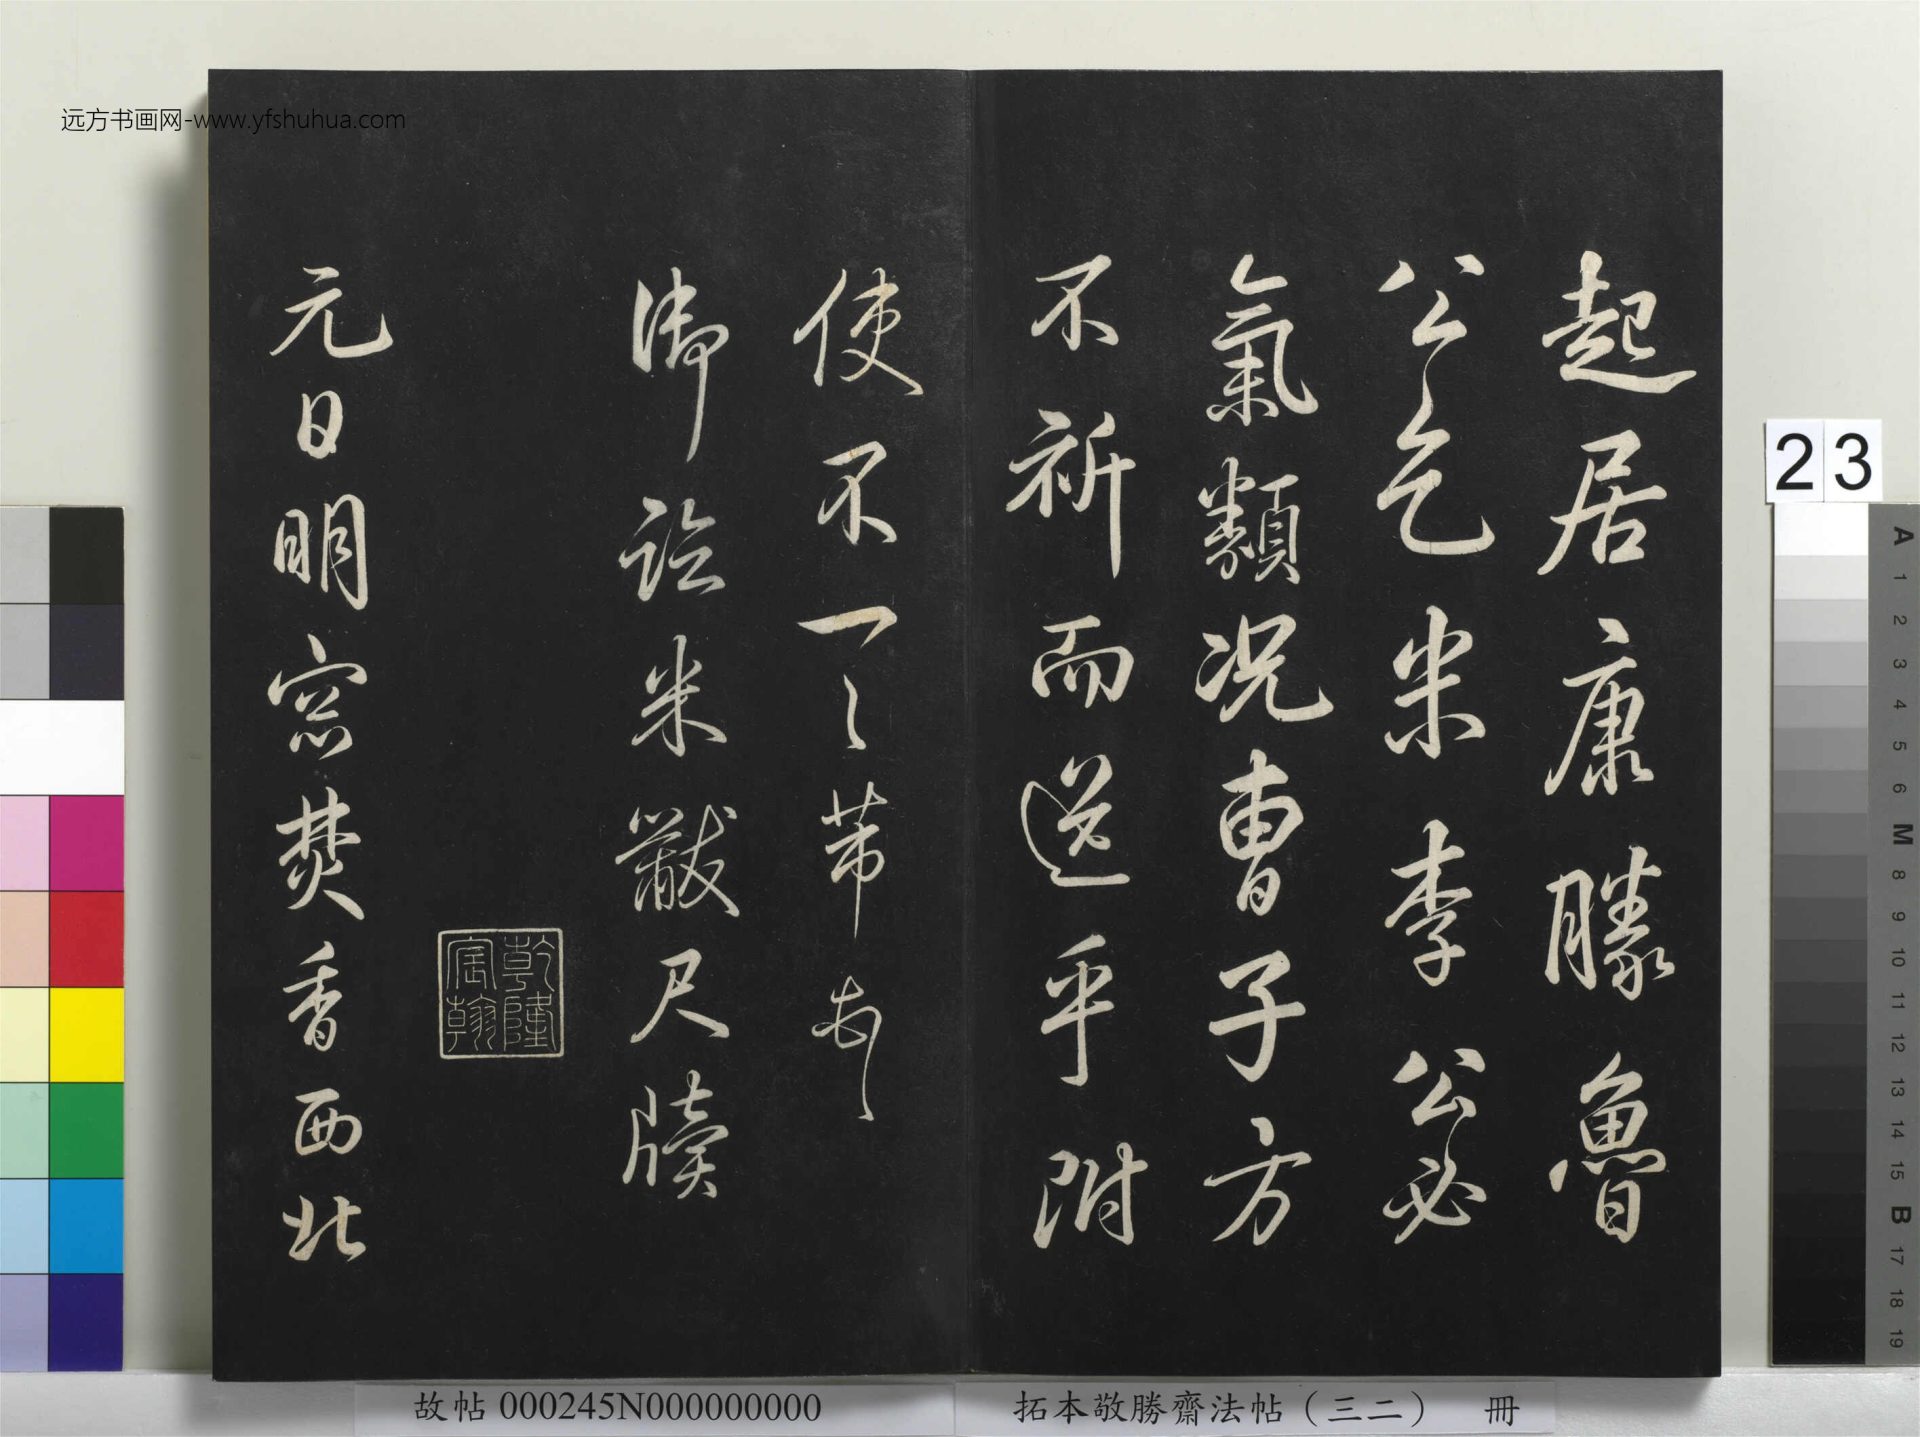 远方书画网-www.yfshuhua.com
起居康勝魯
公乞米李公必
氣類況曹子方
不祈而送乎附
使不一一芾
御論米黻尺牘
乾隆
宸翰
元日明窓焚香西北
23
A
1
2
3
4
5
6
M
8
9
10
11
12
13
14
15
B
17
18
19
故帖 000245N000000000
拓本敬勝齋法帖（三二） 冊